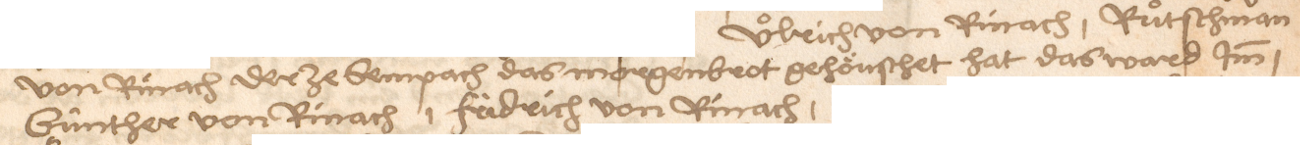 Uͦlrich von Rinach, Ruͦtschman
von Rinach der ze Sempach das morgenbrot gehoͤuschet hat das ward Im̄,
Günther von Rinach, fridrich von Rinach,